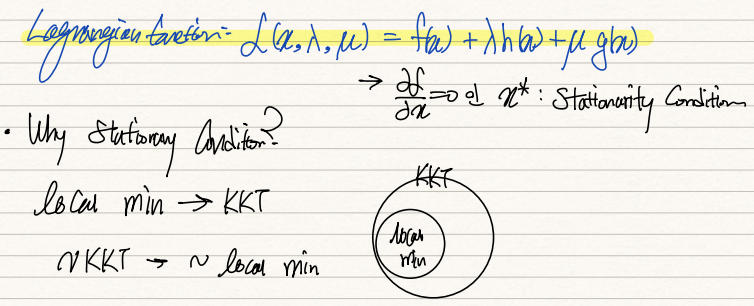 Lagrangian function: L(x, λ, μ) = f(x) + λh(x) + μ g(x)
→ ∂f/∂x = 0 인 x* : Stationarity Condition
• Why Stationary Condition?
local min → KKT
~KKT → ~ local min
KKT
local
min